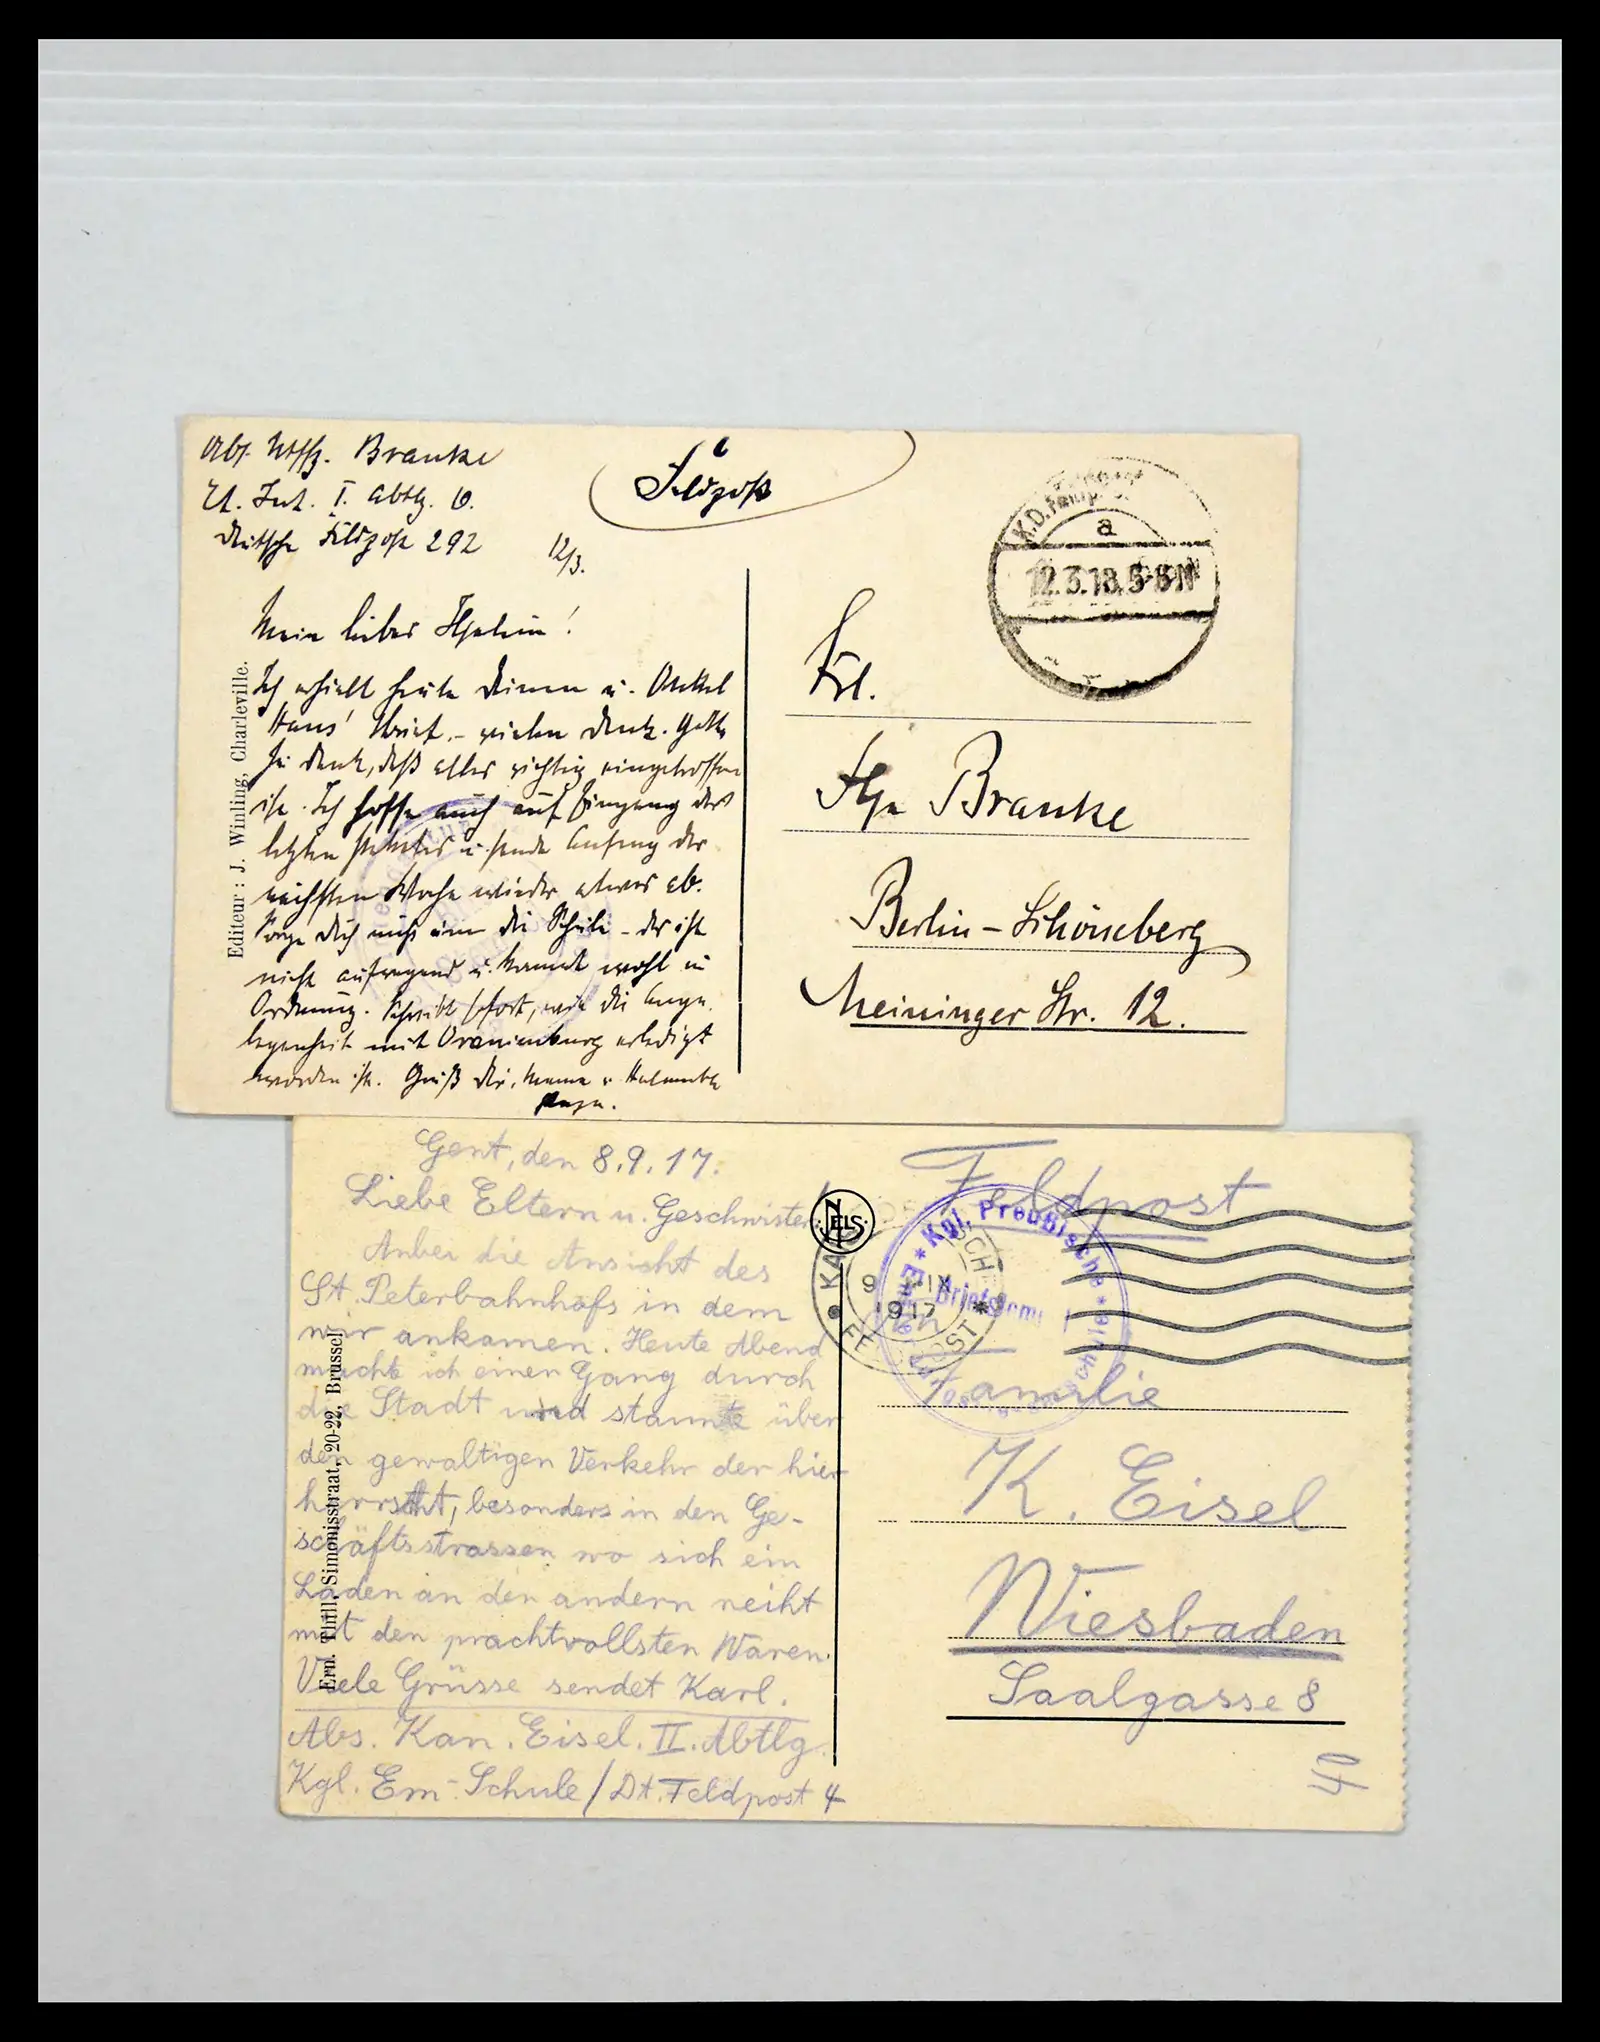 Abs. Uffz. Branke
Et. Int. I. Abtlg.
Deutsche Feldpost 292
12/3.
Feldpost
K.D. Feldp.
a
12.3.18. 5-6N
Mein lieber
Ich erhielt heute Deinen u. Onkel
Hans' Brief. – vielen Dank. Gott
sei Dank, daß alles richtig eingetroffen
ist. Ich hoffe auch auf Eingang des
letzten Paketes u. sende Anfang der
nächsten Woche wieder etwas ab.
Sorge Dich nicht um die Schule – das ist
nicht aufregend u. kommt wohl in
Ordnung. Schreibt sofort, wie die Ange-
legenheit mit Oranienburg erledigt
worden ist. Gruß Dir, Mama u.
Papa.
Editeur : J. Winling, Charleville.
Frl.
Branke
Berlin – Schöneberg
Meininger Str. 12.
Gent, den 8.9.17.
Liebe Eltern u. Geschwister.
Anbei die Ansicht des
St. Peterbahnhofs in dem
wir ankamen. Heute Abend
machte ich einen Gang durch
die Stadt und staunte über
den gewaltigen Verkehr der hier
herrscht, besonders in den Ge-
schäftsstrassen wo sich ein
Laden an den andern reiht
mit den prachtvollsten Waren.
Viele Grüsse sendet Karl.
Abs. Kan. Eisel. II. Abtlg.
Kgl. Em-Schule / Dt. Feldpost 4
Ern. Thill, Simonisstraat, 20-22, Brussel
NELS
Feldpost
* Kgl. Preußische *
Briefstempel
9 IX
1917
Familie
K. Eisel
Wiesbaden
Saalgasse 8